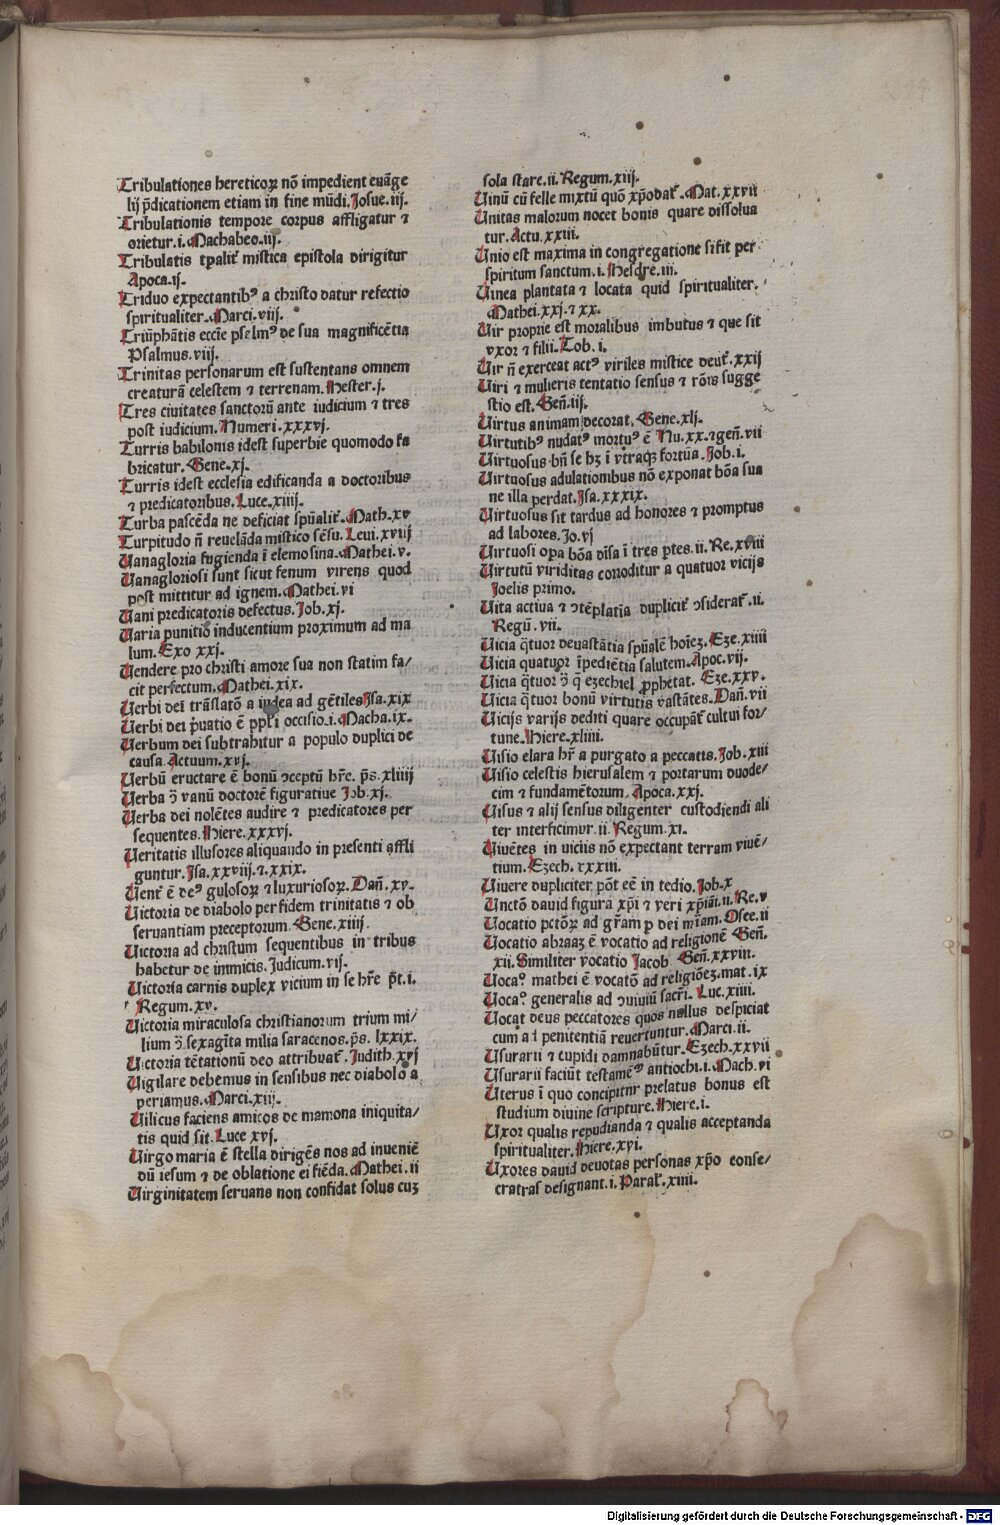 Tribulationes hereticoꝝ nō impedient euāge
lij p̄dicationem etiam in fine mūdi. Josue .iij.
Tribulationis tempore corpus affligatur ⁊
orietur .i. Machabeo .iij.
Tribulatis tp̄alit̉ mistica epistola dirigitur
Apoca .ij.
Triduo expectantibꝰ a christo datur refectio
spiritualiter. Marci .viij.
Triūphātis eccīe pselmꝰ de sua magnificētia
Psalmus .viij.
Trinitas personarum est sustentans omnem
creaturā celestem ⁊ terrenam. Hester .j.
Tres ciuitates sanctorū ante iudicium ⁊ tres
post iudicium. Numeri .xxxvj.
Turris babilonis idest superbie quomodo fa
bricatur. Gene .xj.
Turris idest ecclesia edificanda a doctoribus
⁊ predicatoribus. Luce .xiiij.
Turba pascēda ne deficiat spūalit̉. Math .xv
Turpitudo n̄ reuelāda mistico sēsu. Leui .xviij
Uanagloria fugienda ī elemosina. Mathei .v.
Uanagloriosi sunt sicut fenum virens quod
post mittitur ad ignem. Mathei .vi
Uani predicatoris defectus. Job .xj.
Uaria punitio inducentium proximum ad ma
lum. Exo xxj.
Uendere pro christi amore sua non statim fa/
cit perfectum. Mathei .xix.
Uerbi dei trāslatō a iudea ad gētiles Jsa .xix
Uerbi dei p̄uatio ē ppl̄i occisio .i. Macha .ix.
Uerbum dei subtrahitur a populo duplici de
causa Actuum .xvj.
Uerbū eructare ē bonū ɔceptū hr̄e. ps̄ .xliiij
Uerba ɔ̄ vanū doctorē figuratiue Job .xj.
Uerba dei nolētes audire ⁊ predicatores per
sequentes. Hiere .xxxvj.
Ueritatis illusores aliquando in presenti affli
guntur. Jsa .xxviij. ⁊ .xxix.
Uent̉ ē deꝰ gulosoꝝ ⁊ luxuriosoꝝ. Dan̄ .xv.
Uictoria de diabolo per fidem trinitatis ⁊ ob
seruantiam preceptorum. Gene .xiiij.
Uictoria ad christum sequentibus in tribus
habetur de inimicis. Judicum .vij.
Uictoria carnis duplex vicium in se hr̄e p̄t .i.
Regum .xv.
Uictoria miraculosa christianorum trium mi/
lium ɔ̄ sexagīta milia saracenos. ps̄ .lxxix.
Uictoria tētationū deo attribuat̉. Judith .xvj
Uigilare debemus in sensibus nec diabolo a
periamus. Marci .xiij.
Uilicus faciens amicos de mamona iniquita/
tis quid sit. Luce xvj.
Uirgo maria ē stella dirigēs nos ad inueniē
dū iesum ⁊ de oblatione ei fiēda. Mathei .ii
Uirginitatem seruans non confidat solus cuȝ
sola stare .ii. Regum .xiij.
Uinū cū felle mixtū quō xp̄o dat̉. Mat .xxvii
Unitas malorum nocet bonis quare dissolua
tur. Actu .xxiii.
Unio est maxima in congregatione si fit per
spiritum sanctum .i. Hesdre .iii.
Uinea plantata ⁊ locata quid spiritualiter.
Mathei .xxj. ⁊ xx.
Uir proprie est moralibus imbutus ⁊ que sit
vxor ⁊ filii. Tob .i.
Uir n̄ exerceat actꝰ viriles mistice deut̉ .xxij
Uiri ⁊ mulieris tentatio sensus ⁊ rōis sugge
stio est. Gen̄ .iij.
Uirtus animam decorat. Gene .xlj.
Uirtutibꝰ nudatꝰ mortuꝰ ē Nu .xx. ⁊ gen̄ .vii
Uirtuosus bn̄ se hȝ ī vtraqꝫ fortūa. Job .i.
Uirtuosus adulationibus nō exponat bōa sua
ne illa perdat. Jsa .xxxix.
Uirtuosus sit tardus ad honores ⁊ promptus
ad labores. Jo .vj
Uirtuosi oꝑa bōa dīsa ī tres ꝑtes .ii. Re .xviii
Uirtutū viriditas corroditur a quatuor vicijs
Joelis primo.
Uita actiua ⁊ ɔtēplatīa duplicit̉ ɔsiderat̉ .ii.
Regū .vii.
Uicia q̄tuor deuastātia spūalē hoīeȝ. Eze .xiiii
Uicia quatuor īpediētia salutem. Apoc .vij.
Uicia q̄tuor ɔ̄ q̄ ezechiel ꝓphetat. Eze .xxv.
Uicia q̄tuor bonū virtutis vastātes. Dan̄ .vii
Uicijs varijs dediti quare occupāt̉ cultui for/
tune. Hiere .xliiii.
Uisio clara hr̄ a purgato a peccatis. Job .xiii
Uisio celestis hierusalem ⁊ portarum duode/
cim ⁊ fundamētorum. Apoca .xxj.
Uisus ⁊ alij sensus diligenter custodiendi ali
ter interficimur .ii Regum .xi.
Uiuētes in viciis nō expectant terram viuē/
tium. Ezech .xxxiii.
Uiuere dupliciter pōt eē in tedio. Job .x
Unctō dauid figura xp̄i ⁊ veri xp̄iāi .ii. Re .v
Uocatio pctōꝝ ad gr̄am ꝑ dei mīam. Osee .ii
Uocatio abraaȝ ē vocatio ad religionē Gen̄.
xii. Similiter vocatio Jacob Gen̄ .xxviii.
Uocaº mathei ē vocatō ad religiōeȝ. mat .ix
Uocaº generalis ad ɔuiuiū sacr̄i. Luc .xiiii.
Uocat deus peccatores quos nullus despiciat
cum a ī penitentiā reuertuntur. Marci .ii.
Usurarii ⁊ cupidi damnabūtur. Ezech .xxvii
Usurarii faciūt testamēº antiochi .i. Mach .vi
Uterus ī quo concipitur prelatus bonus est
studium diuine scripture. Hiere .i.
Uxor qualis repudianda ⁊ qualis acceptanda
spiritualiter. Hiere .xvi.
Uxores dauid deuotas personas xp̄o conse/
cratras designant .i. Paral̉ .xiiii.
Digitalisierung gefördert durch die Deutsche Forschungsgemeinschaft - DFG